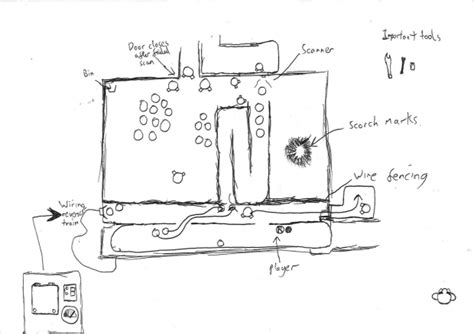 Door closes
after failed
scan
Scanner
Important tools
Bin
Scorch marks
Wire fencing
Wiring
train
Player